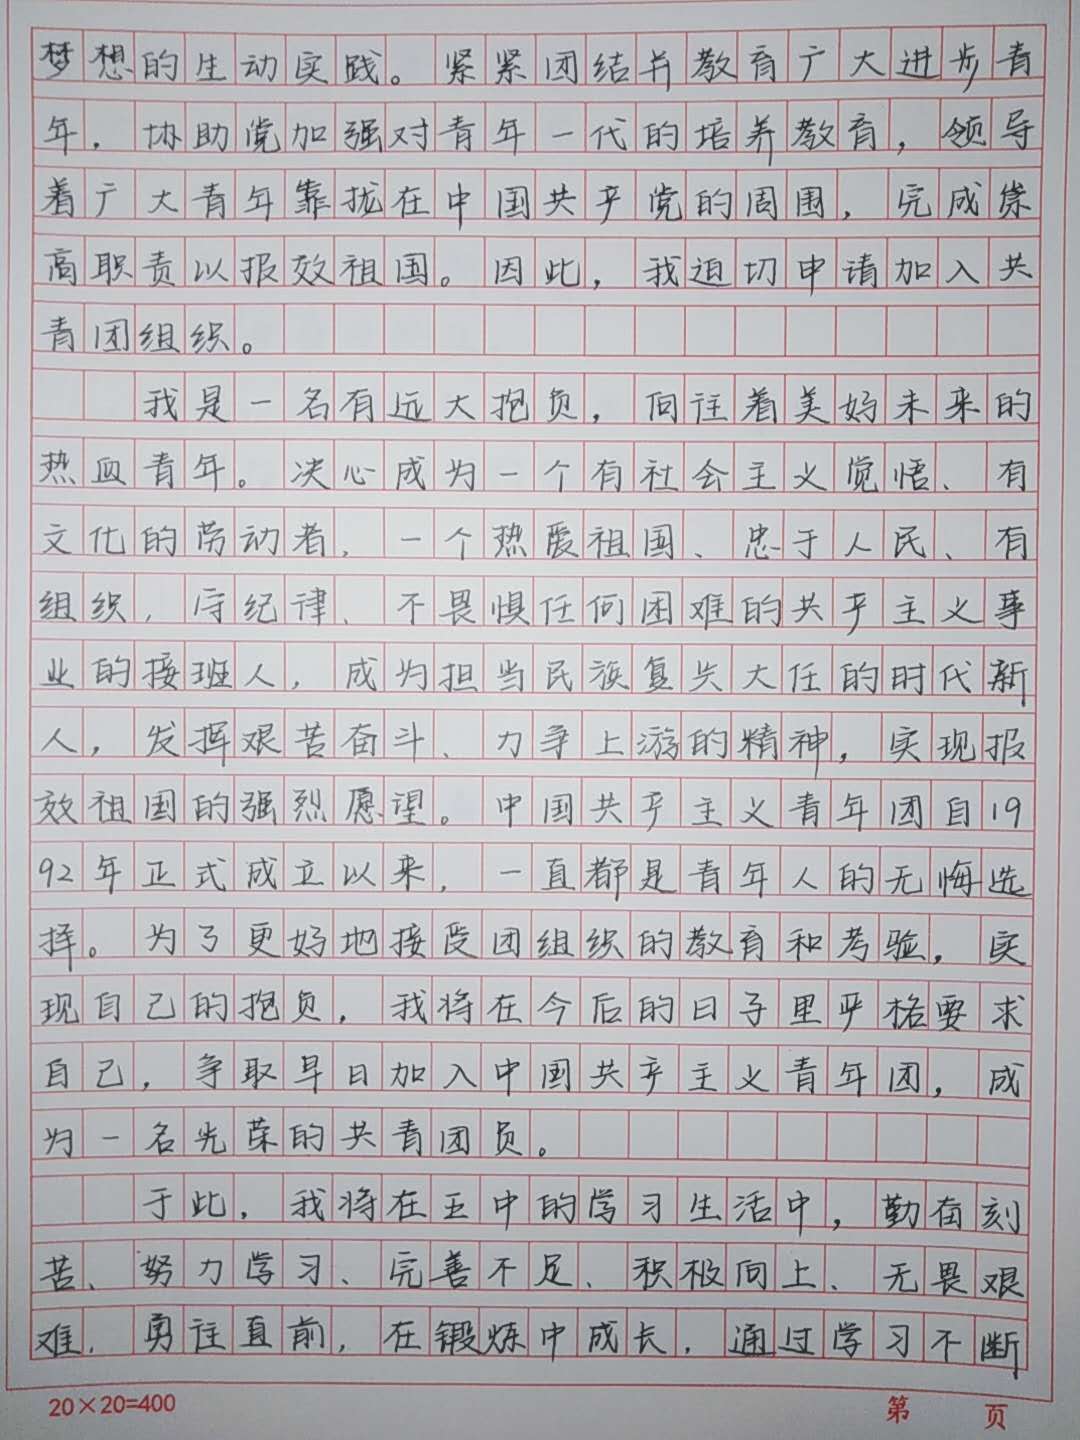 梦想的生动实践。紧紧团结并教育广大进步青
年，协助党加强对青年一代的培养教育，领导
着广大青年靠拢在中国共产党的周围，完成崇
高职责以报效祖国。因此，我迫切申请加入共
青团组织。
我是一名有远大抱负，向往着美好未来的
热血青年。决心成为一个有社会主义觉悟、有
文化的劳动者，一个热爱祖国、忠于人民、有
组织，守纪律、不畏惧任何困难的共产主义事
业的接班人，成为担当民族复兴大任的时代新
人，发挥艰苦奋斗、力争上游的精神，实现报
效祖国的强烈愿望。中国共产主义青年团自19
92年正式成立以来，一直都是青年人的无悔选
择。为了更好地接受团组织的教育和考验，实
现自己的抱负，我将在今后的日子里严格要求
自己，争取早日加入中国共产主义青年团，成
为一名光荣的共青团员。
于此，我将在五中的学习生活中，勤奋刻
苦、努力学习、完善不足、积极向上、无畏艰
难，勇往直前，在锻炼中成长，通过学习不断
20×20=400
第 页